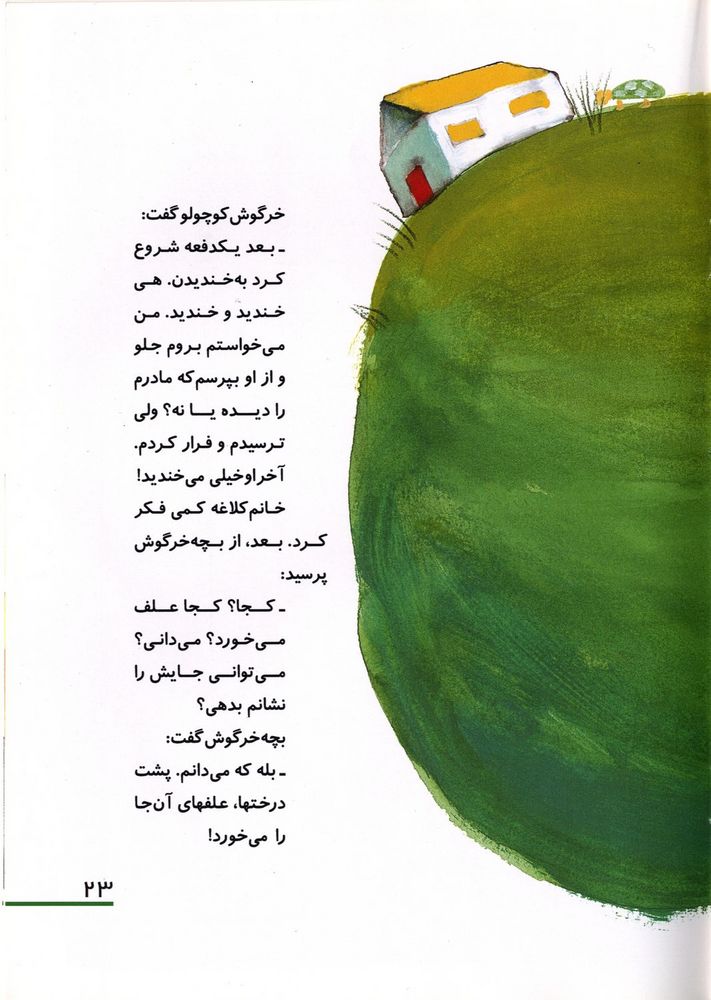 خرگوش کوچولو گفت:
ـ بعد یکدفعه شروع
کرد به‌خندیدن. هی
خندید و خندید. من
می‌خواستم بروم جلو
و از او بپرسم که مادرم
را دیده یا نه؟ ولی
ترسیدم و فرار کردم.
آخر او خیلی می‌خندید!
خانم کلاغه کمی فکر
کرد. بعد، از بچه‌خرگوش
پرسید:
ـ کجا؟ کجا علف
می‌خورد؟ می‌دانی؟
می‌توانی جایش را
نشانم بدهی؟
بچه‌خرگوش گفت:
ـ بله که می‌دانم. پشت
درختها، علفهای آن‌جا
را می‌خورد!
۲۳